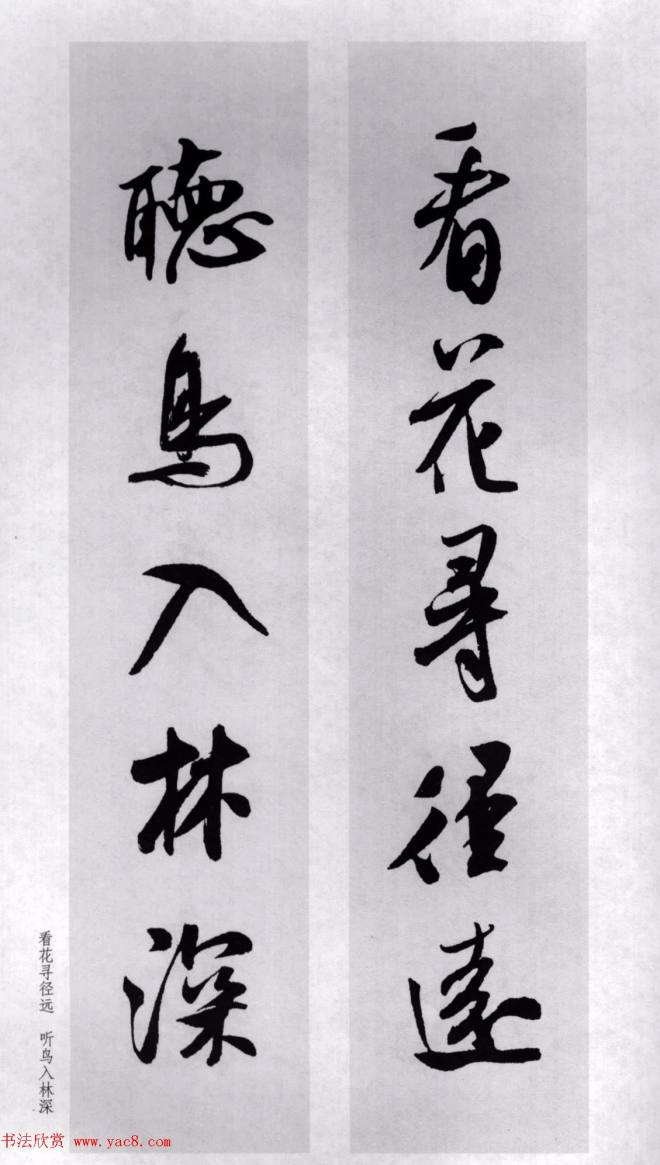 看花尋徑遠
聽鳥入林深
看花寻径远 听鸟入林深
书法欣赏 www.yac8.com